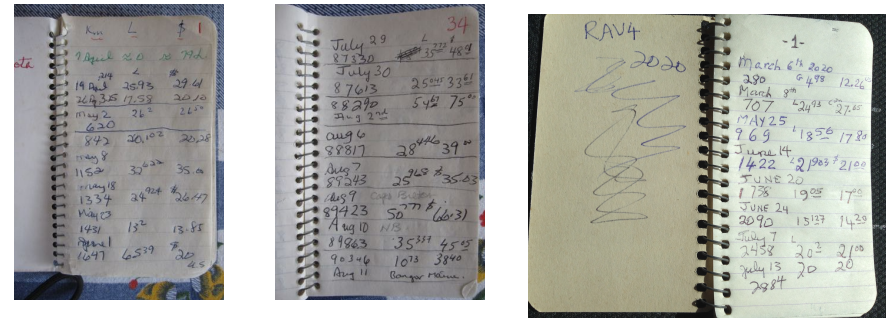 ota
Km L $ 1
19 April 25.93 29.41
26 Ap 315 17.58 20.10
May 2 26² 26⁵⁰
620
842 20,102 20,28
May 8
1152 32⁶²² 35.00
May 18
1334 24⁹²⁴ $26.47
May 23
1431 13² 13.85
June 1 $
1647 20
34
July 29 L $
87330 35⁷⁷² 48
July 30
87613 25⁰⁴⁵ 33⁶¹
88290 54⁶⁷ 75⁰⁰
Aug 2nd
Aug 6
88817 39⁰⁰
Aug 7
89243 25⁹⁶⁸ $35.03
Aug 9 Cape Breton
89423 50⁷⁷⁷ $66.31
Aug 10 NB
89863 35³³⁷ 45⁰⁵
90346 10⁷³ 3840
Aug 11 Bangor Maine.
RAV4
2020
-1-
March 6th 2020
290 G 4.98 12.26
March 8th
707 L24⁹³ 27.85
MAY 25
969 L18⁵⁶ 17 80
June 14
1422 L21⁹⁰³ $21⁰⁰
JUNE 20
1738 19⁰⁵ 17⁰⁰
JUNE 24
2090 13¹³⁷ 14²⁹
July 7 L
2458 20² 21⁰⁰
July 13 20 20
2884